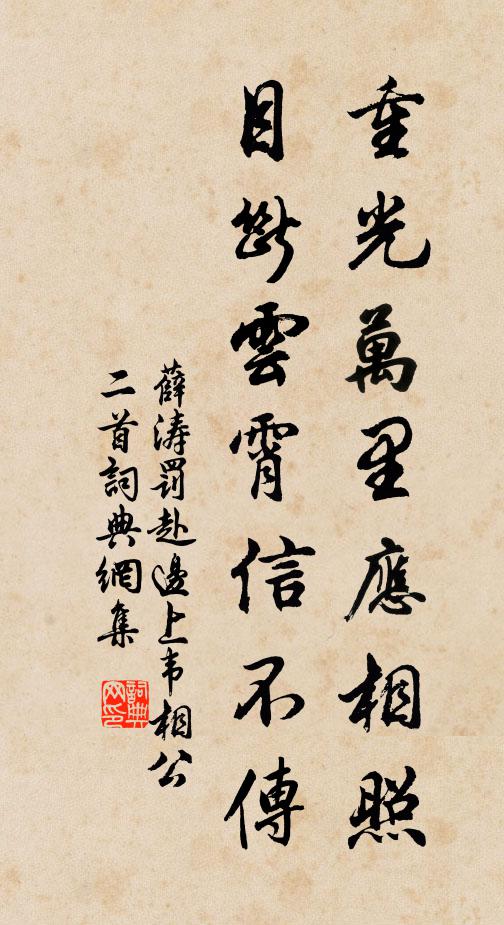 重光萬里應相照
目斷雲霄信不傳
薛濤罰赴邊上韦相公
二首詞典網集
詞典网印